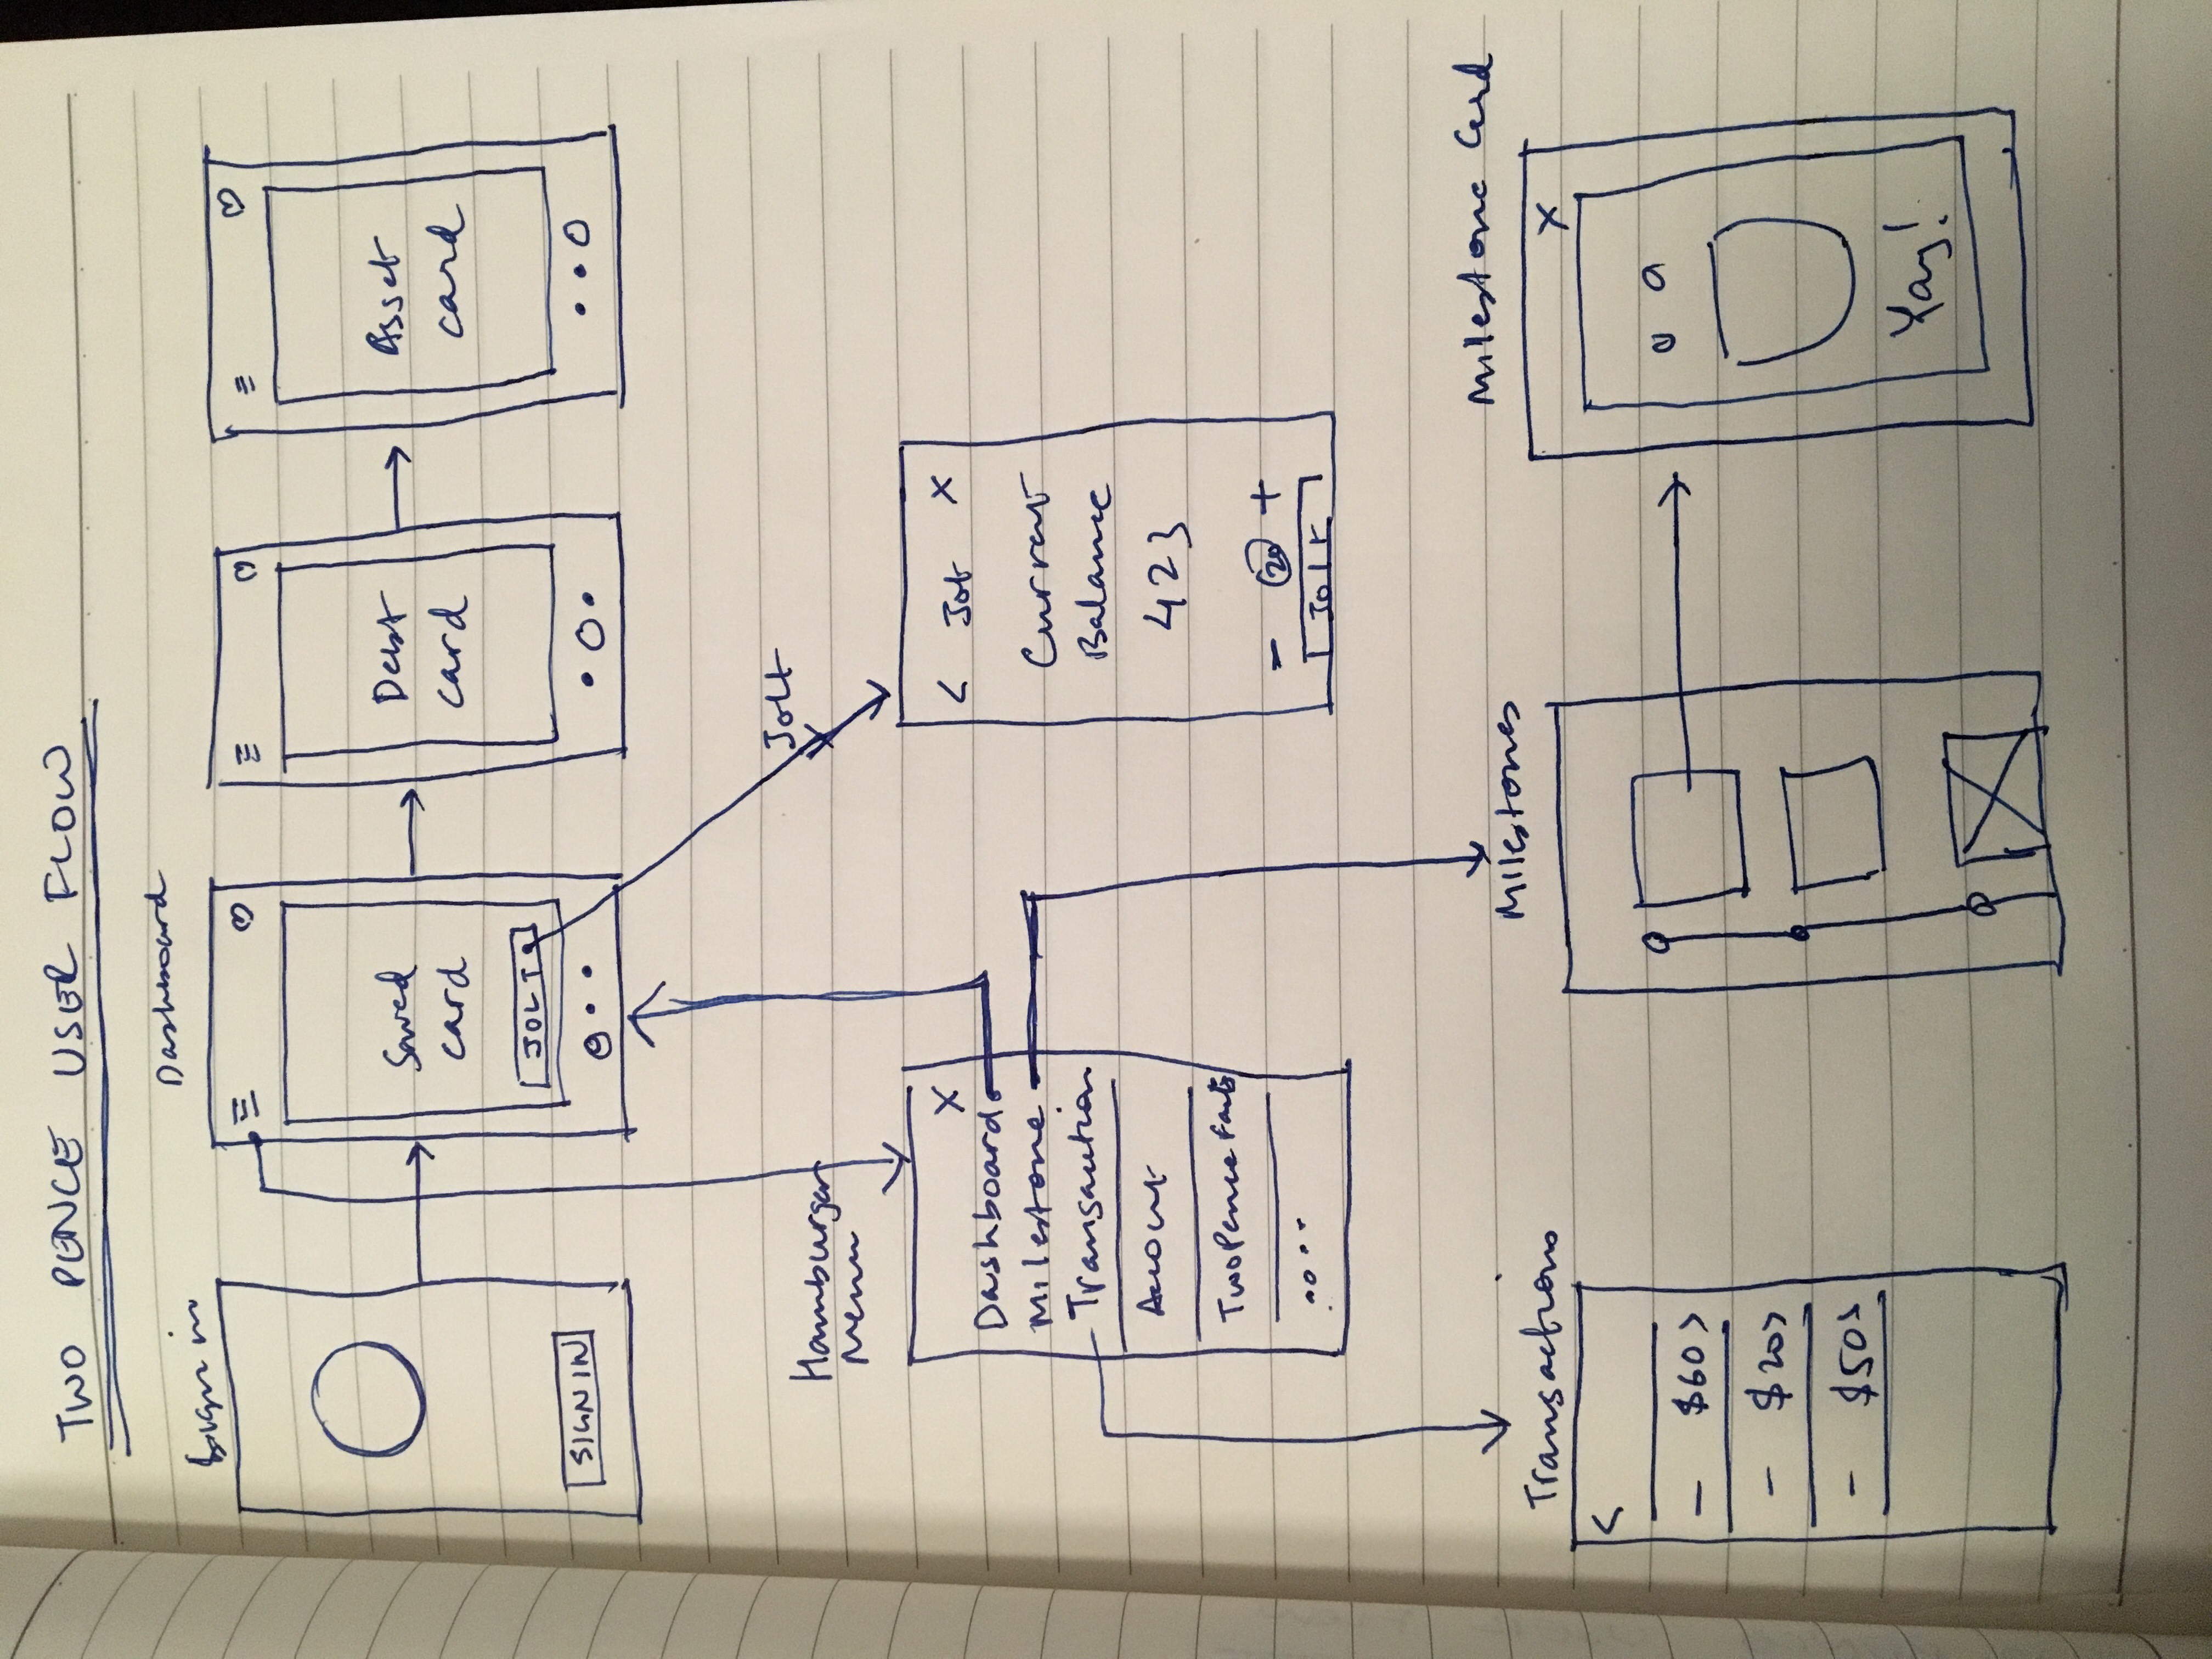 TWO PENCE USER FLOW
Sign in
Dashboard
SIGN IN
Saved
card
JOLT
Debt
card
Asset
card
Hamburger
Menu
Jolt
X
Dashboard
Milestone
Transaction
Account
TwoPence Facts
< Jolt X
Current
Balance
423
- 20 +
Jolt
Transactions
<
- $60 >
- $20 >
- $50 >
Milestones
Milestone Card
X
Yay!